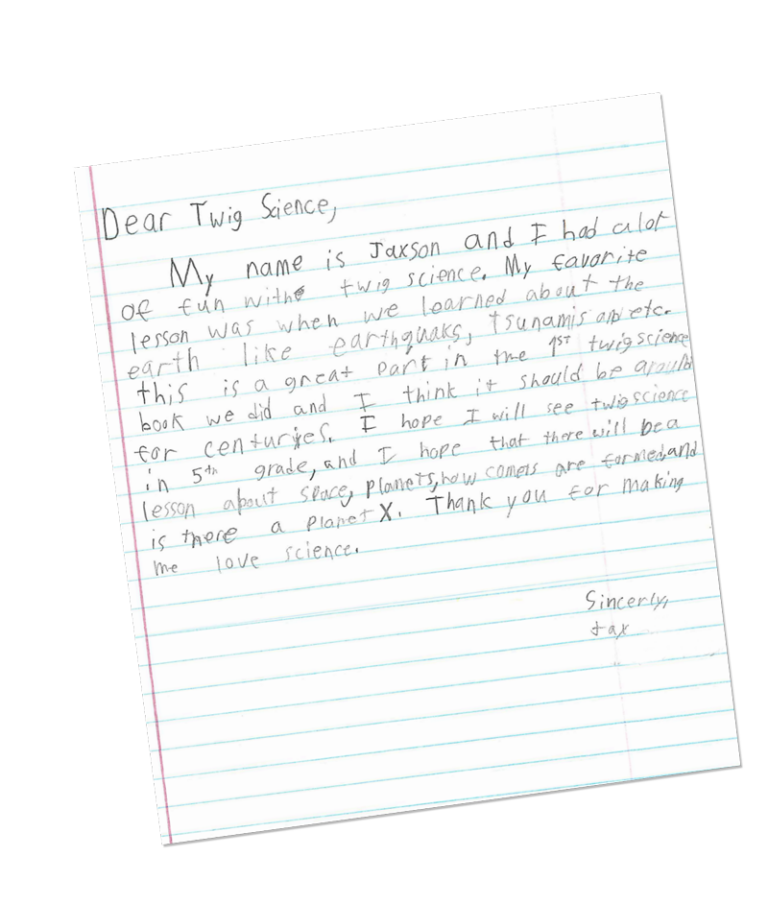 Dear Twig Science,
My name is Jaxson and I had alot
of fun with twig science. My favorite
lesson was when we learned about the
earth like earthquaks, tsunamis and etc.
this is a great part in the 1st twig science
book we did and I think it should be around
for centuries. I hope I will see twig science
in 5th grade, and I hope that there will be a
lesson about space, planets, how comets are formed, and
is there a planet X. Thank you for making
me love science.
Sincerly,
Jax